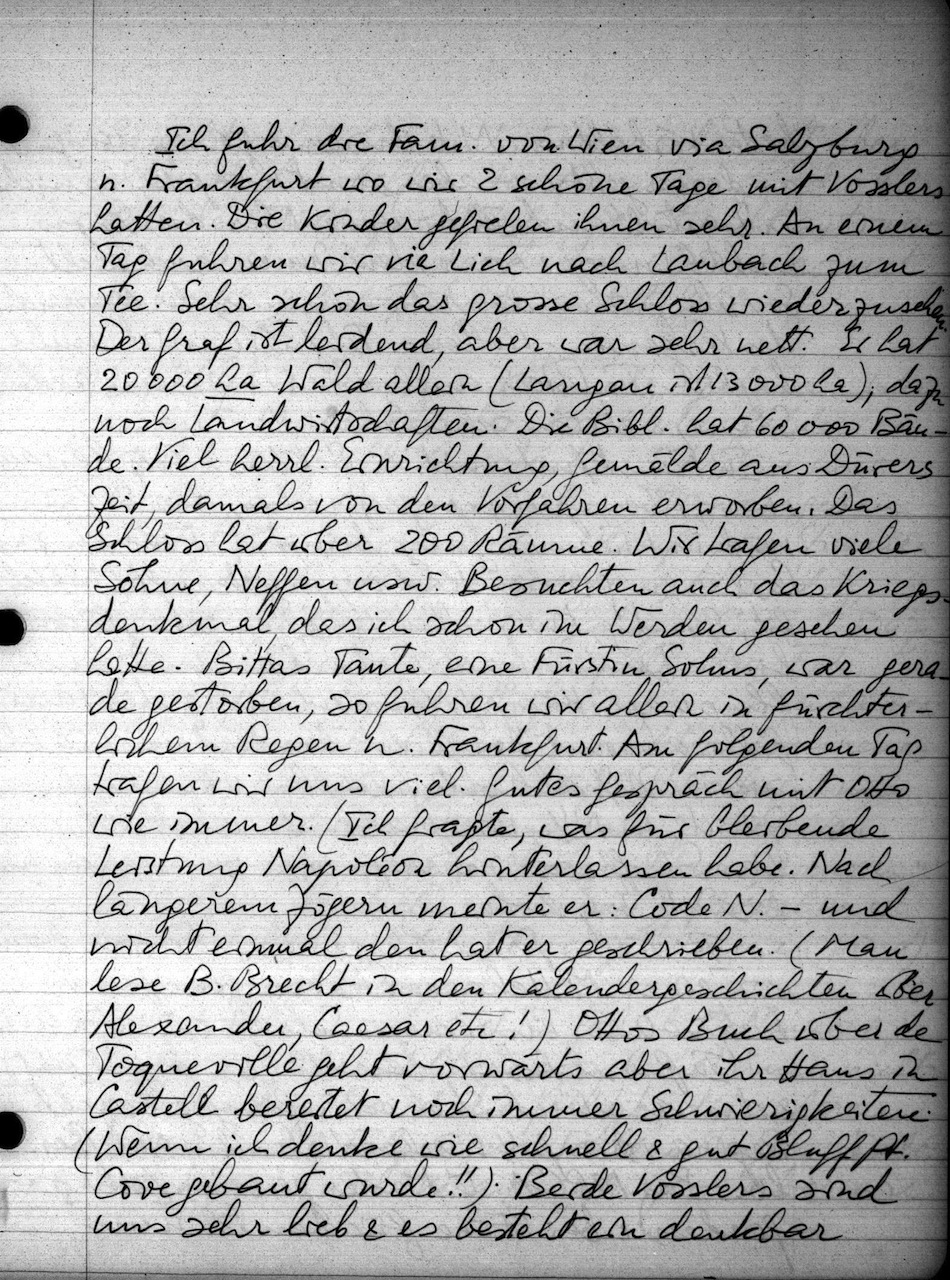 Ich fuhr die Fam. von Wien via Salzburg
n. Frankfurt wo wir 2 schöne Tage mit Vosslers
hatten. Die Kinder gefielen ihnen sehr. An einem
Tag fuhren wir via Lich nach Laubach zum
Tee. Sehr schön das grosse Schloss wiederzusehen
Der Graf ist leidend, aber war sehr nett. Er hat
20000 ha Wald allein (Langau ist 13000 ha), dazu
noch Landwirtschaften. Die Bibl. hat 60000 Bän-
de. Viel herrl. Einrichtung, Gemälde aus Dürers
Zeit, damals von den Vorfahren erworben. Das
Schloss hat über 200 Räume. Wir trafen viele
Söhne, Neffen usw. Besuchten auch das Kriegs-
denkmal, das ich schon im Werden gesehen
hatte. Bittas Tante, eine Fürstin Solms, war gera-
de gestorben, so fuhren wir allein in fürchter-
lichem Regen n. Frankfurt. Am folgenden Tag
trafen wir uns viel. Gutes Gespräch mit Otto
wie immer. (Ich fragte, was für bleibende
Leistung Napoléon hinterlassen habe. Nach
längerem Zögern meinte er: Code N. – und
nicht einmal den hat er geschrieben. (Man
lese B. Brecht in den Kalendergeschichten über
Alexander, Caesar etc!) Ottos Buch über de
Toqueville geht vorwärts aber ihr Haus in
Castell bereitet noch immer Schwierigkeiten.
(Wenn ich denke wie schnell & gut Bluff Pt.
Cove gebaut wurde!!). Beide Vosslers sind
uns sehr lieb & es besteht ein denkbar